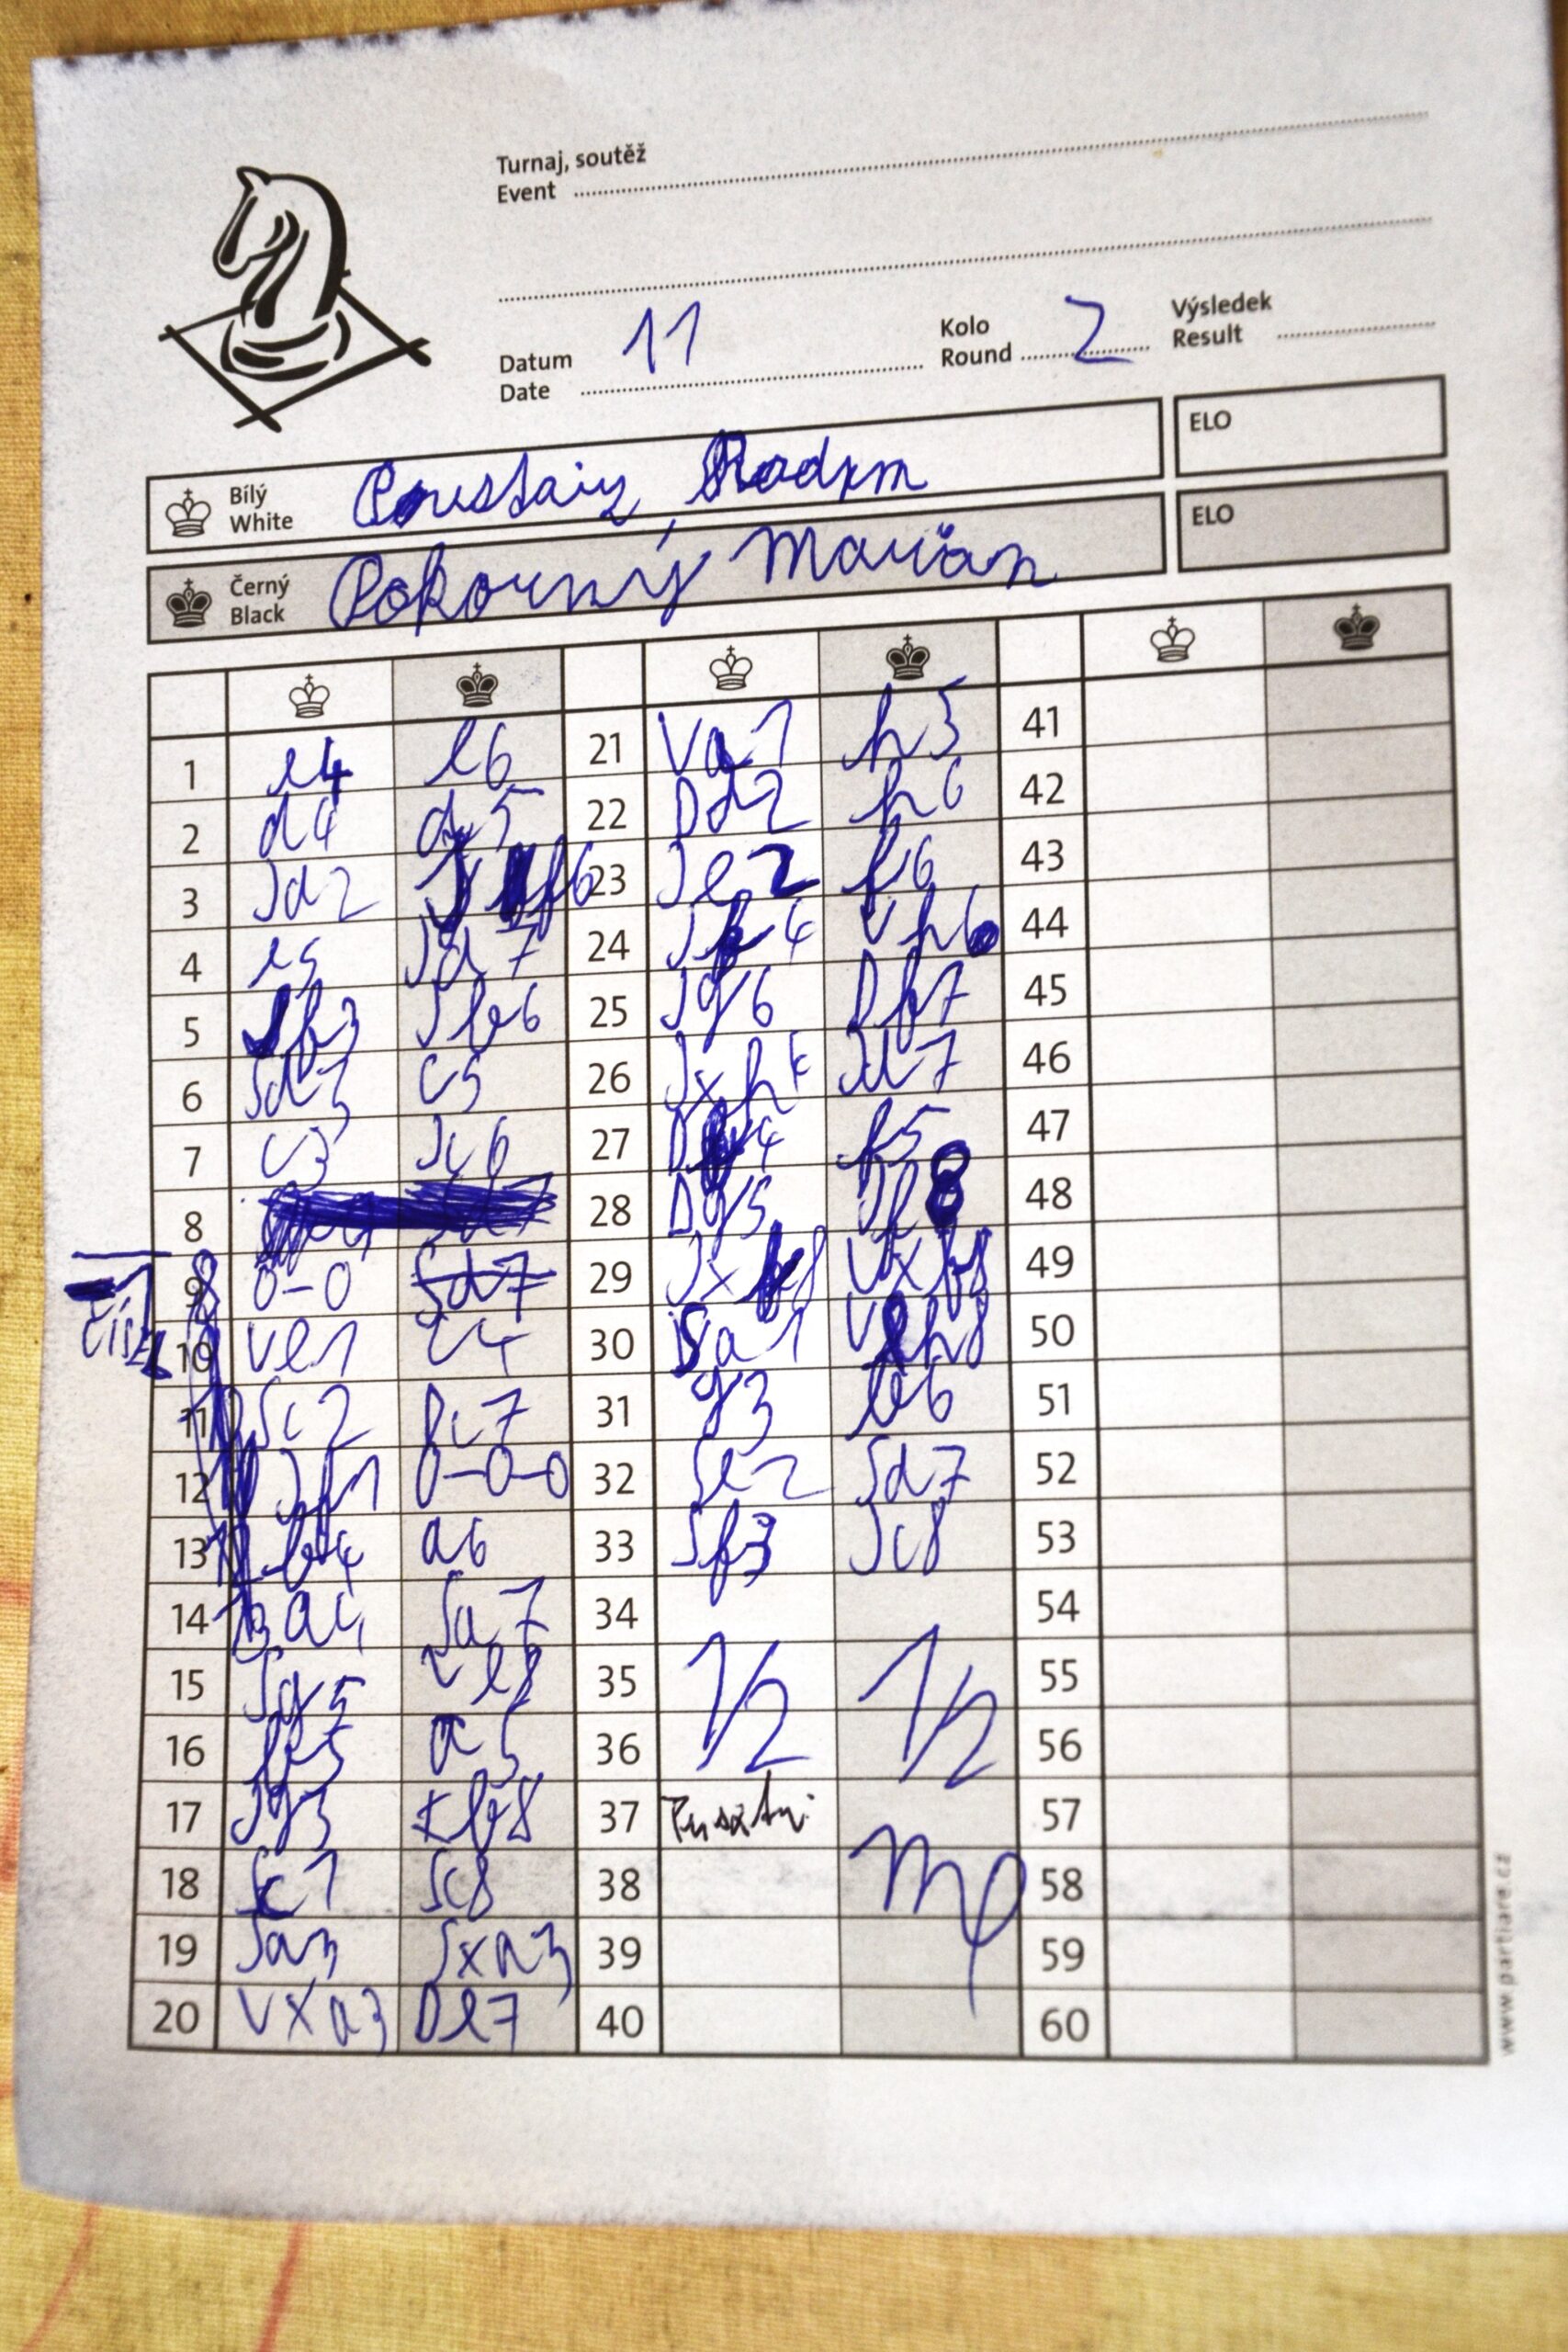 Turnaj, soutěž
Event
Datum
Date 11 Kolo
Round 2 Výsledek
Result
Bílý
White ELO
Černý
Black Pokorný Marián ELO
1 e4 e6 21 Va1 h5 41
2 d4 d5 22 Dd2 h6 42
3 Jd2 Jf6 23 Je2 f6 43
4 e5 Jd7 24 Jf4 Vh6 44
5 Jf3 Jb6 25 Jg6 Df7 45
6 Sd3 c5 26 Jxh Jd7 46
7 c3 Jc6 27 f5 47
8 28 Dg5 Jf8 48
9 0-0 Sd7 29 Jxf8 Vxf8 49
10 Ve1 c4 30 Sa1 Vh8 50
11 Sc2 Dc7 31 g3 b6 51
12 Jf1 0-0-0 32 Se2 Sd7 52
13 b4 a6 33 Sf3 Jc8 53
14 a4 Sa7 34 54
15 Sg5 Ve8 35 1/2 1/2 55
16 b5 a5 36 56
17 Jg3 Kb8 37 57
18 Sc1 Sc8 38 58
19 Sa3 Sxa3 39 59
20 Vxa3 De7 40 60
www.partiare.cz